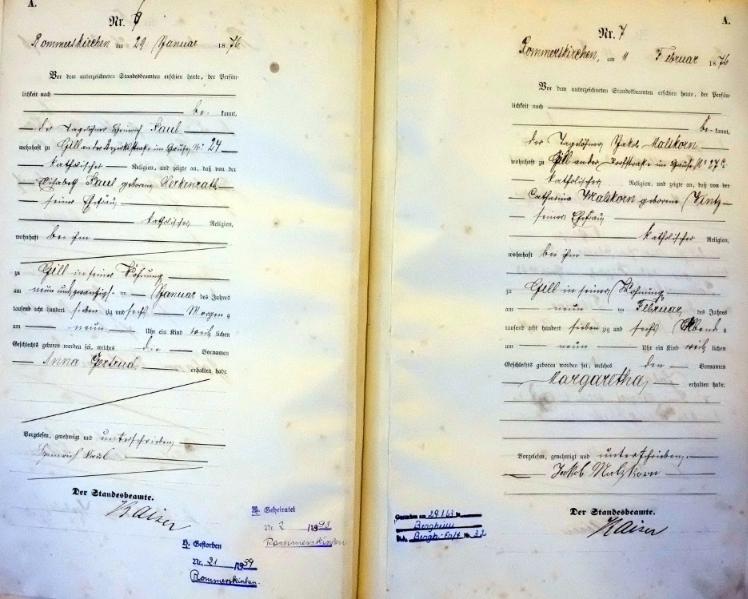 A.
Nr. 6
Rommerskirchen am 29 Januar 1876
Vor dem unterzeichneten Standesbeamten erschien heute, der Persön-
lichkeit nach
be kannt,
der Tagelöhner Heinrich Paul
wohnhaft zu Gill an der Bezirksstraße im Hause No 24
katholischer Religion, und zeigte an, daß von der
Elisabeth Paul geborene
seiner Ehefrau
katholischer Religion,
wohnhaft bei ihm
zu Gill in seiner Wohnung
am neun und zwanzigsten Januar des Jahres
tausend acht hundert sieben zig und sechs Morgens
um neun Uhr ein Kind weib lichen
Geschlechts geboren worden sei, welches die Vornamen
Anna Gertrud erhalten habe.
Vorgelesen, genehmigt und unterschrieben
Heinrich Paul
Der Standesbeamte.
Kaiser
H. Geheiratet
Nr. 2
Rommerskirchen
H. Gestorben
Nr. 21 1959
Rommerskirchen
A.
Nr. 7
Rommerskirchen, am 11 Februar 1876
Vor dem unterzeichneten Standesbeamten erschien heute, der Persön-
lichkeit nach
be kannt,
der Tagelöhner Jakob Malzkorn
wohnhaft zu Gill an der Dorfstraße im Hause No 27
katholischer Religion, und zeigte an, daß von der
Catharina Malzkorn geborene
seiner Ehefrau
katholischer Religion,
wohnhaft bei ihm
zu Gill in seiner Wohnung
am neun ten Februar des Jahres
tausend acht hundert sieben zig und sechs Abends
um neun Uhr ein Kind weib lichen
Geschlechts geboren worden sei, welches den Vornamen
Margaretha erhalten habe.
Vorgelesen, genehmigt und unterschrieben.
Jakob Malzkorn
Der Standesbeamte.
Kaiser
Gestorben am 29.1.63 in
Bergheim